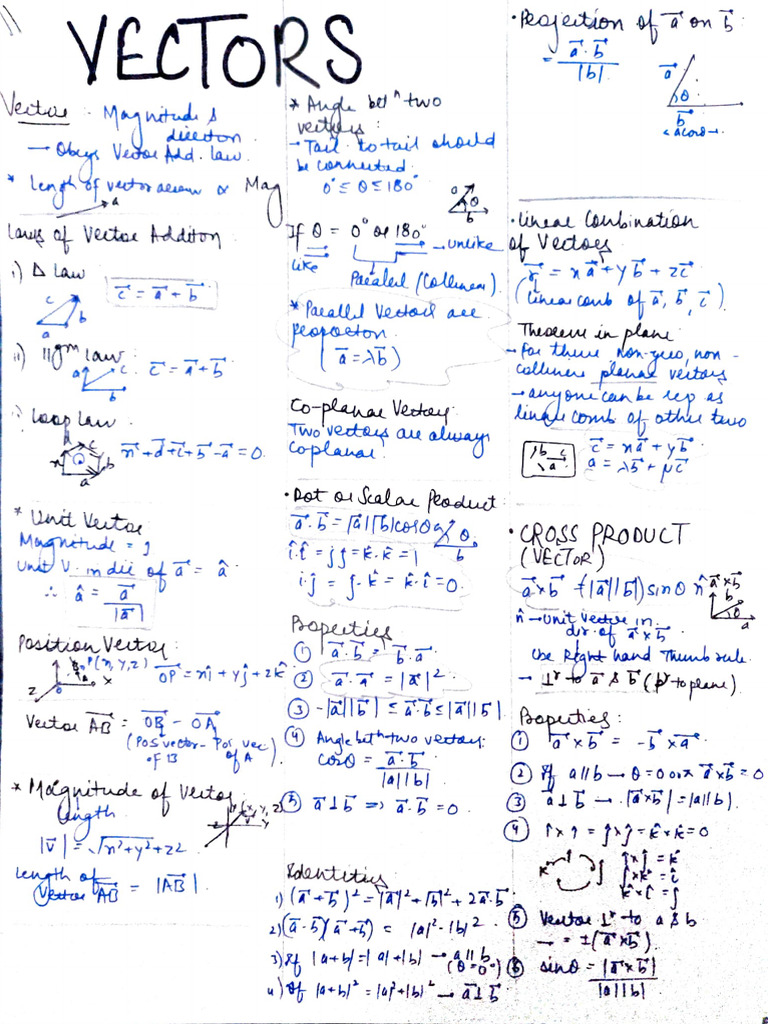 VECTORS
Vector: Magnitude &
direction
→ Obeys Vector Add. law.
* Length of vector arrow ∝ Mag
a
Laws of Vector Additon
i) Δ Law
c⃗ = a⃗ + b⃗
c b a
ii) ||gm Law
a c b
c⃗ = a⃗ + b⃗
Loop Law
n⃗ + d⃗ + c⃗ + b⃗ - a⃗ = 0
* Unit Vector
Magnitude = 1
Unit V. in dir of a⃗ = â
∴ â = a⃗ / |a⃗|
Position Vector:
P(x, y, z)
OP⃗ = xî + yĵ + zk̂
Vector AB⃗ = OB⃗ - OA⃗
(Pos vector - Pos. vec
of B of A)
* Magnitude of Vector
length
|v⃗| = √x²+y²+z²
length of
Vector AB⃗ = |AB⃗|.
* Angle betⁿ two
vectors:
- Tail to tail should
be connected
0° ≤ θ ≤ 180°
a θ b
If θ = 0° or 180°
like
→ unlike
Parallel (Collinear)
* Parallel Vectors are
proporton
( a⃗ = λb⃗ )
Co-planar Vectors:
Two vectors are always
coplanar
• Dot or Scalar Product:
a⃗ · b⃗ = |a⃗||b⃗|cosθ
a θ b
î·î = ĵ·ĵ = k̂·k̂ = 1
î·ĵ = ĵ·k̂ = k̂·î = 0.
Properties
① a⃗ · b⃗ = b⃗ · a⃗
② a⃗ · a⃗ = |a⃗|²
③ -|a⃗||b⃗| ≤ a⃗·b⃗ ≤ |a⃗||b⃗|
④ Angle betⁿ two vectors:
cosθ = a⃗ · b⃗ / |a||b|
⑤ a⃗ ⊥ b⃗ ⟹ a⃗ · b⃗ = 0
Identities
1) (a⃗ + b⃗)² = |a⃗|² + |b⃗|² + 2a⃗·b⃗
2) (a⃗ - b⃗)(a⃗ + b⃗) = |a|² - |b|²
3) If |a+b| = |a| + |b| → a||b
(θ = 0°)
4) If |a+b|² = |a|² + |b|² → a⃗ ⊥ b⃗
• Projection of a⃗ on b⃗:
= a⃗ · b⃗ / |b|.
a⃗ θ
b⃗
< acosθ →
• Linear Combination
of Vectors
r⃗ = xa⃗ + yb⃗ + zc⃗
(linear comb of a⃗, b⃗, c⃗)
Theorem in plane
- For three non-zero, non-
collinear planar vectors
→ anyone can be rep as
linear comb of other two
b c a
c⃗ = xa⃗ + yb⃗
a = λb⃗ + μc⃗
• CROSS PRODUCT
(VECTOR)
a⃗ × b⃗ = (|a⃗||b⃗|) sinθ n̂
a⃗×b⃗ b θ a
n̂ → Unit Vector in
dir. of a⃗ × b⃗
Use Right hand Thumb rule.
→ ⊥r to a⃗ & b⃗ (⊥r to plane)
Properties:
① a⃗ × b⃗ = -b⃗ × a⃗
② If a||b → θ = 0 or π a⃗ × b⃗ = 0
③ a⃗ ⊥ b⃗ → |a⃗ × b⃗| = |a||b|.
④ î × î = ĵ × ĵ = k̂ × k̂ = 0
î × ĵ = k̂
k i j
ĵ × k̂ = î
k̂ × î = ĵ
⑤ Vector ⊥r to a & b
→ = ±(a⃗ × b⃗).
⑥ sinθ = |a⃗ × b⃗| / |a||b|